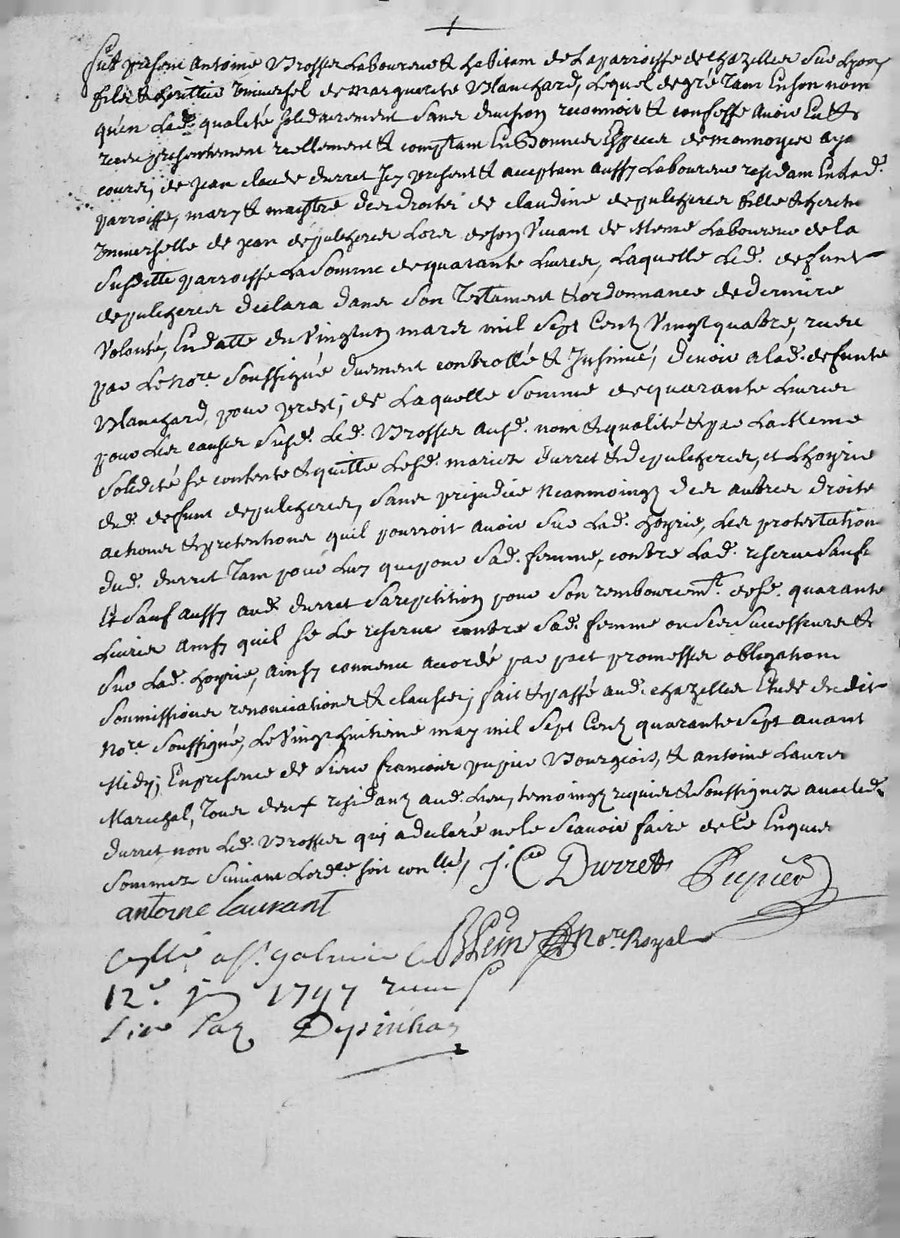 Fut présent Antoine Brosser Laboureur & habitant de La parroisse de chazelles sur Lyon,
fils & héritier universel de Marguerite Blanchard, Lequel de gré tant en son nom
qu'en Lade qualité solidairement sans division reconnoit & confesse avoir Eu &
receu presentement reellement & comptant En Bonnes Especes de monnoyes ayt
cours, de jean claude durret Icy present & acceptant aussy Laboureur residant En Lad.
parroisse, mary & maistre des droits de claudine depulchier fille & herite
universelle de jean depulchier Lors de son Vivant de Meme Laboureur de la
susditte parroisse La somme de quarante Livres, Laquelle Led. defunt
depulchier declara dans son Testament & ordonnance de derniere
Volonté, En datte du Vingtun mars mil sept Cent Vingt quatre, receu
par Le Nore soussigné duement controllé & Insinué, devoir a lad. defunte
Blanchard, pour prest; de Laquelle somme de quarante Livres
pour Les causes susd. Led. Brosser ausd. nom & qualité & par La Meme
solidité se contente & quitte Lesd. mariez durret & depulchier, et Lhoyrie
dud. defunt depulchier, sans prejudice Neanmoings des autres droits
actions & pretentions quil pourroit avoir sur Lad. hoyrie, Les protestations
dud. durret Tant pour Luy que pour sad. femme, contre Lad. reserve sauf
Et sauf aussy aud. durret sa repetition pour son remboursemt. desd. quarante
Livres ainsy quil se Le reserve contre sad. femme ou ses successeurs &
sur Lad. hoyrie, ainsy convenu accordé par pact promesses obligations
soumissions renonciations & clauses; fait & passé aud. chazelles Etude dudit
Nore soussigné, Le Vingt huitieme may mil sept Cent quarante sept avant
Midy; En presence de sieur francois pupier Bourgeois, & antoine Laurent
Marechal, Tous deux residants aud. Lieu, temoings requis & soussignez avec led.
durret non Led. Brosser qui a declaré ne le scavoir faire de ce Enquis
sommez suivant Lordce soit conllé, J. Ce Durrett Pupier
antoine laurant
Collé a St. galmier Le Nore Royal
12e jn 1747 receu
Six s Depinhac